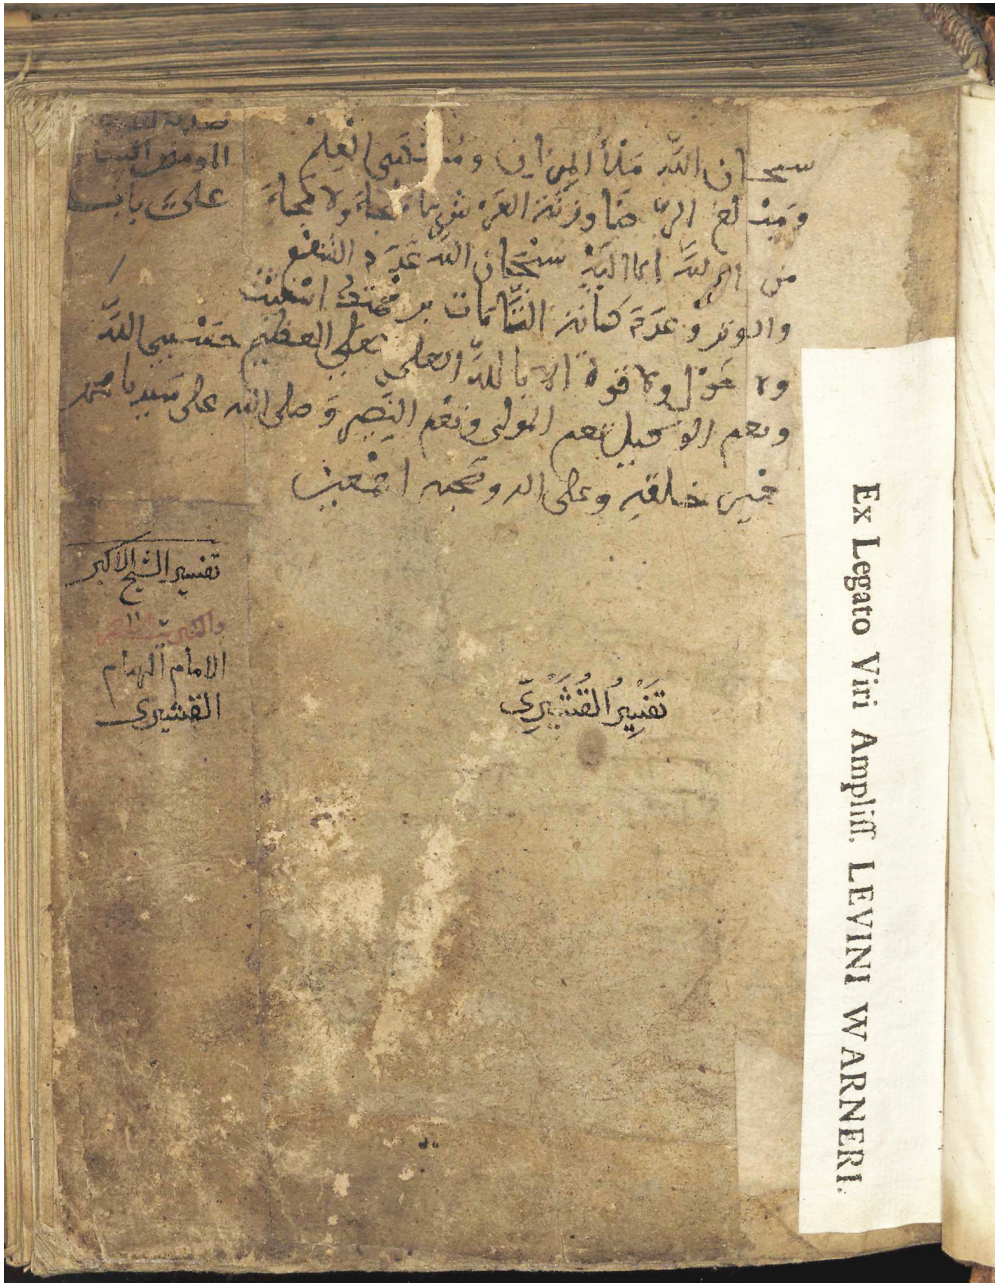 سبحان الله ملأ الميزان ومنتهى العلم
ومبلغ الرضا وزنة العرش لا ملجأ ولا منجاء
من الله الا اليه سبحان الله عدد الشفع
والوتر وعدد كلماته التامات برحمتك استغيث
ولا حول ولا قوة الا بالله العلي العظيم حسبي الله
ونعم الوكيل نعم المولى ونعم النصير وصلى الله على سيدنا محمد
خير خلقه وعلى اله وصحبه اجمعين
على باب
تفسير الشيخ الاكبر
الامام الهمام
القشيري
تَفْسِيرُ الْقُشَيْرِيّ
Ex Legato Viri Ampliff. LEVINI WARNERI.